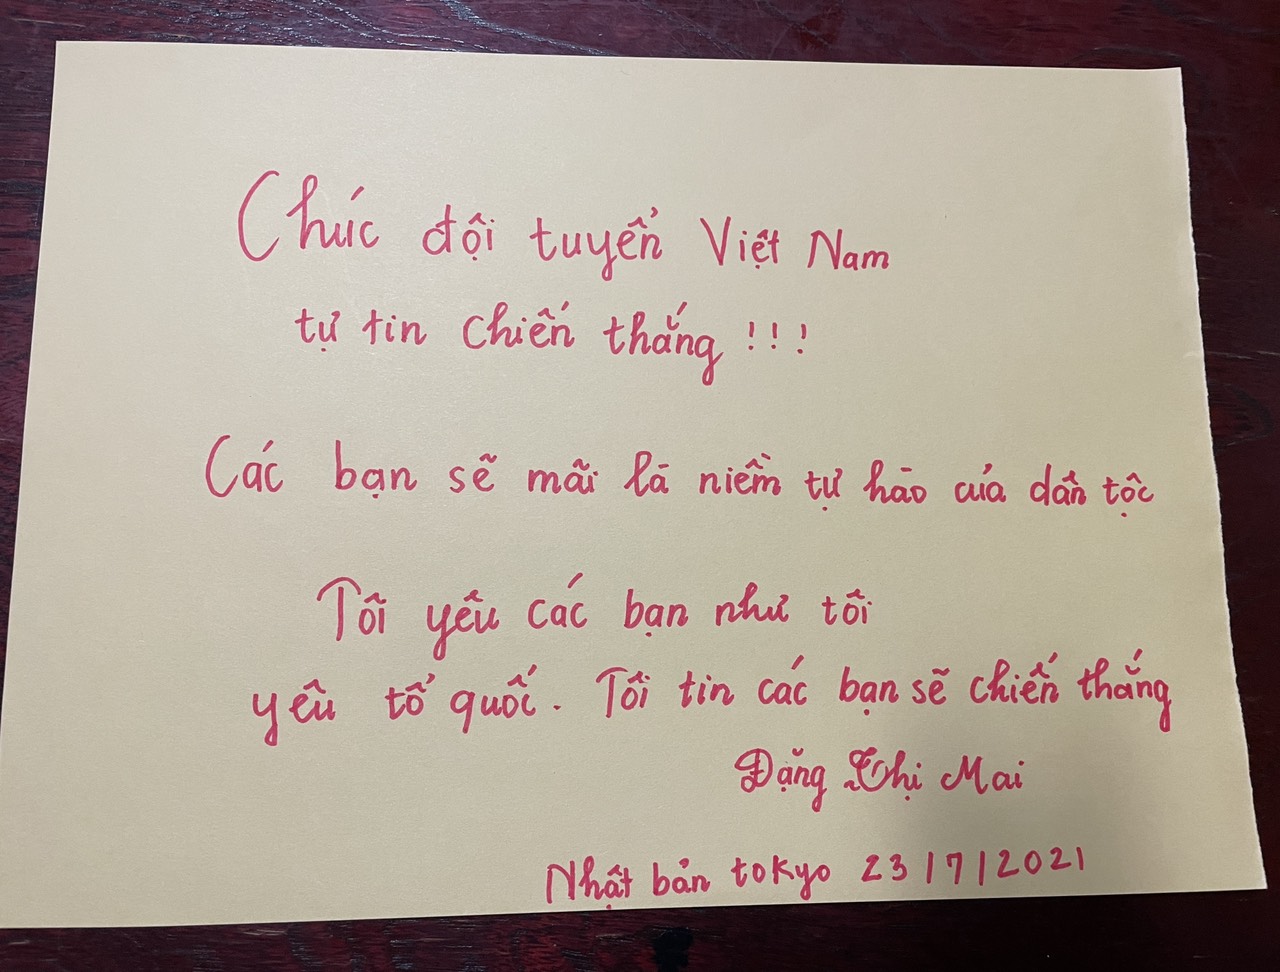 Chúc đội tuyển Việt Nam
tự tin chiến thắng !!!
Các bạn sẽ mãi là niềm tự hào của dân tộc
Tôi yêu các bạn như tôi
yêu tổ quốc. Tôi tin các bạn sẽ chiến thắng
Đặng Thị Mai
Nhật bản tokyo 23/7/2021